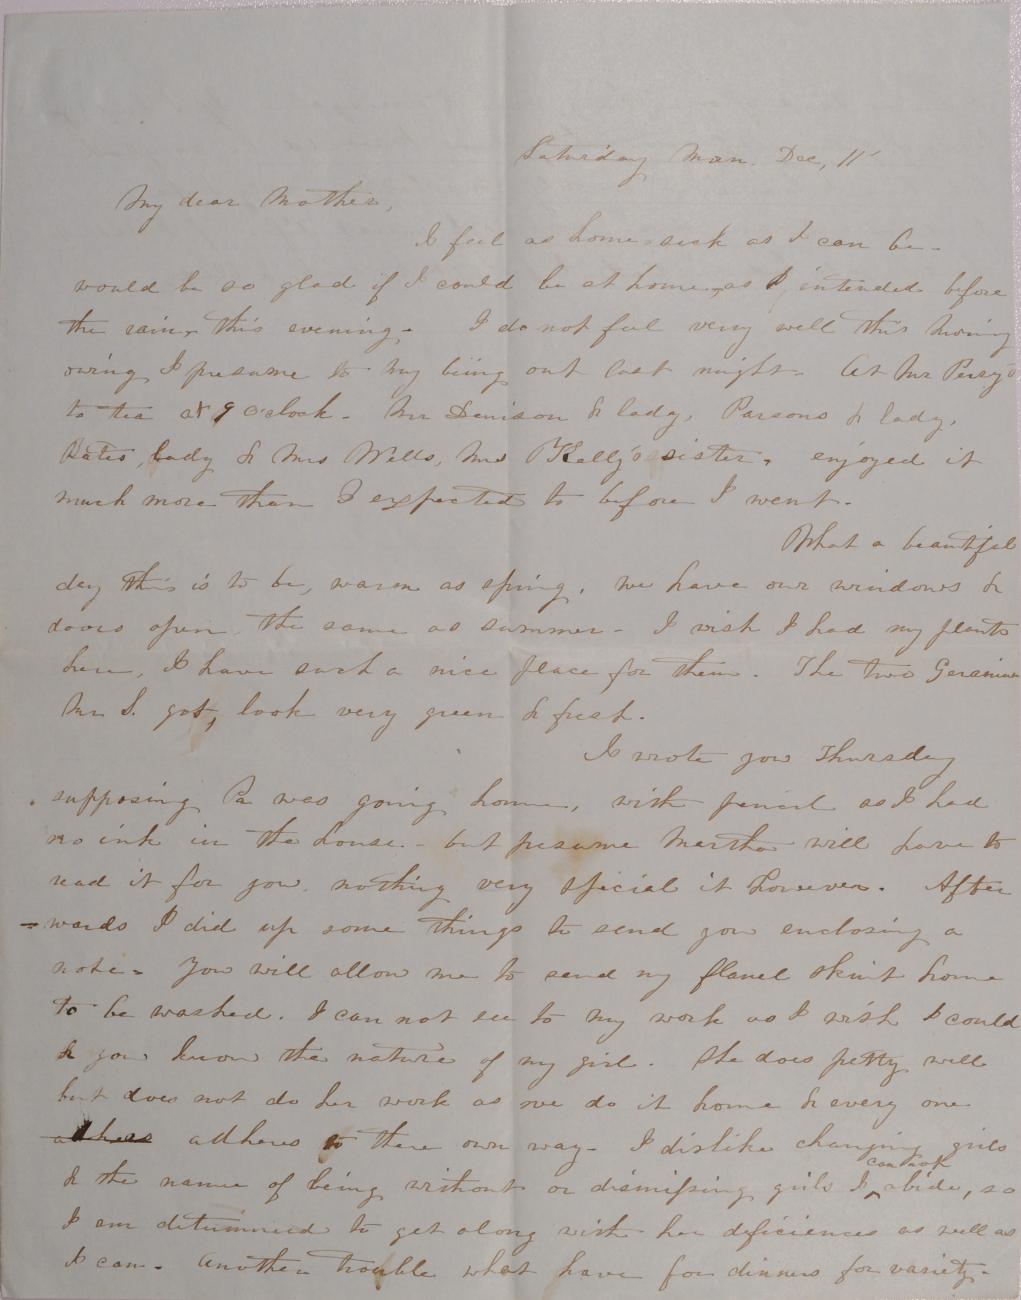 Saturday Morn. Dec, 11
My dear Mother,
I feel as home sick as I can be -
would be so glad if I could be at home, as I, intended before
the rain, this evening. I do not feel very well this morning
owing I presume to my being out last night. At Mr Percy's
to tea at 9 o'clock. Mr Denison & lady, Parsons & lady,
Bates, lady & Mrs Wells, Mrs Kelly's sister. enjoyed it
much more than I expected to before I went.
What a beautiful
day this is to be, warm as spring. we have our windows &
doors open the same as summer - I wish I had my plants
here, I have such a nice place for them. The two Geranium
Mr S. got, look very green & fresh.
I wrote you Thursday
supposing Pa was going home, with pencil as I had
no ink in the house - but presume Martha will have to
read it for you. nothing very special it however. After
- wards I did up some things to send you enclosing a
note - You will allow me to send my flanel skirt home
to be washed. I can not see to my work as I wish I could
& you know the nature of my girl. She does petty well
but does not do her work as we do it home & every one
adheres to there own way - I dislike changing girls
& the name of being without or dismissing girls I cannot abide, so
I am determined to get along with her deficiences as well as
I can - Another trouble what have for dinners for variety -